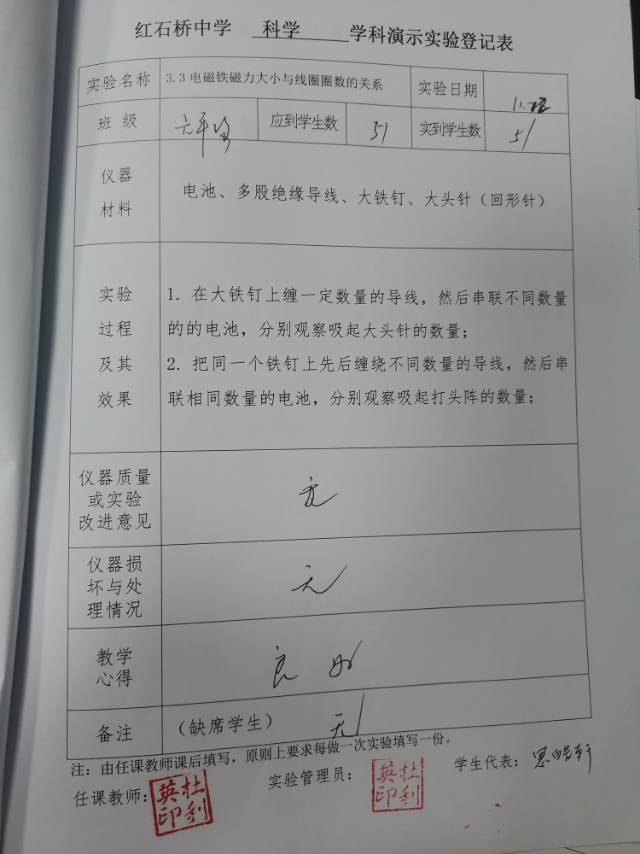 红石桥中学 科学 学科演示实验登记表
实验名称 3.3电磁铁磁力大小与线圈圈数的关系 实验日期
班 级 应到学生数 51 实到学生数 51
仪器
材料
电池、多股绝缘导线、大铁钉、大头针（回形针）
实验
过程
及其
效果
1. 在大铁钉上缠一定数量的导线，然后串联不同数量
的的电池，分别观察吸起大头针的数量；
2. 把同一个铁钉上先后缠绕不同数量的导线，然后串
联相同数量的电池，分别观察吸起打头阵的数量；
仪器质量
或实验
改进意见
无
仪器损
坏与处
理情况
无
教学
心得
良好
备注 （缺席学生） 无
注：由任课教师课后填写，原则上要求每做一次实验填写一份。
任课教师： 实验管理员： 学生代表：
杜利
英印
杜利
英印